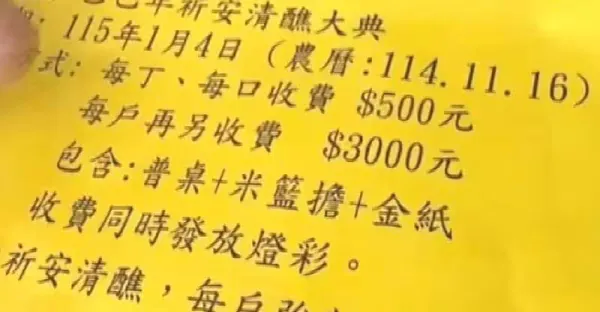 乙巳年祈安清醮大典
115年1月4日（農曆:114.11.16）
式: 每丁、每口收費 $500元
每戶再另收費 $3000元
包含:普桌+米籃擔+金紙
收費同時發放燈彩。
祈安清醮，每戶